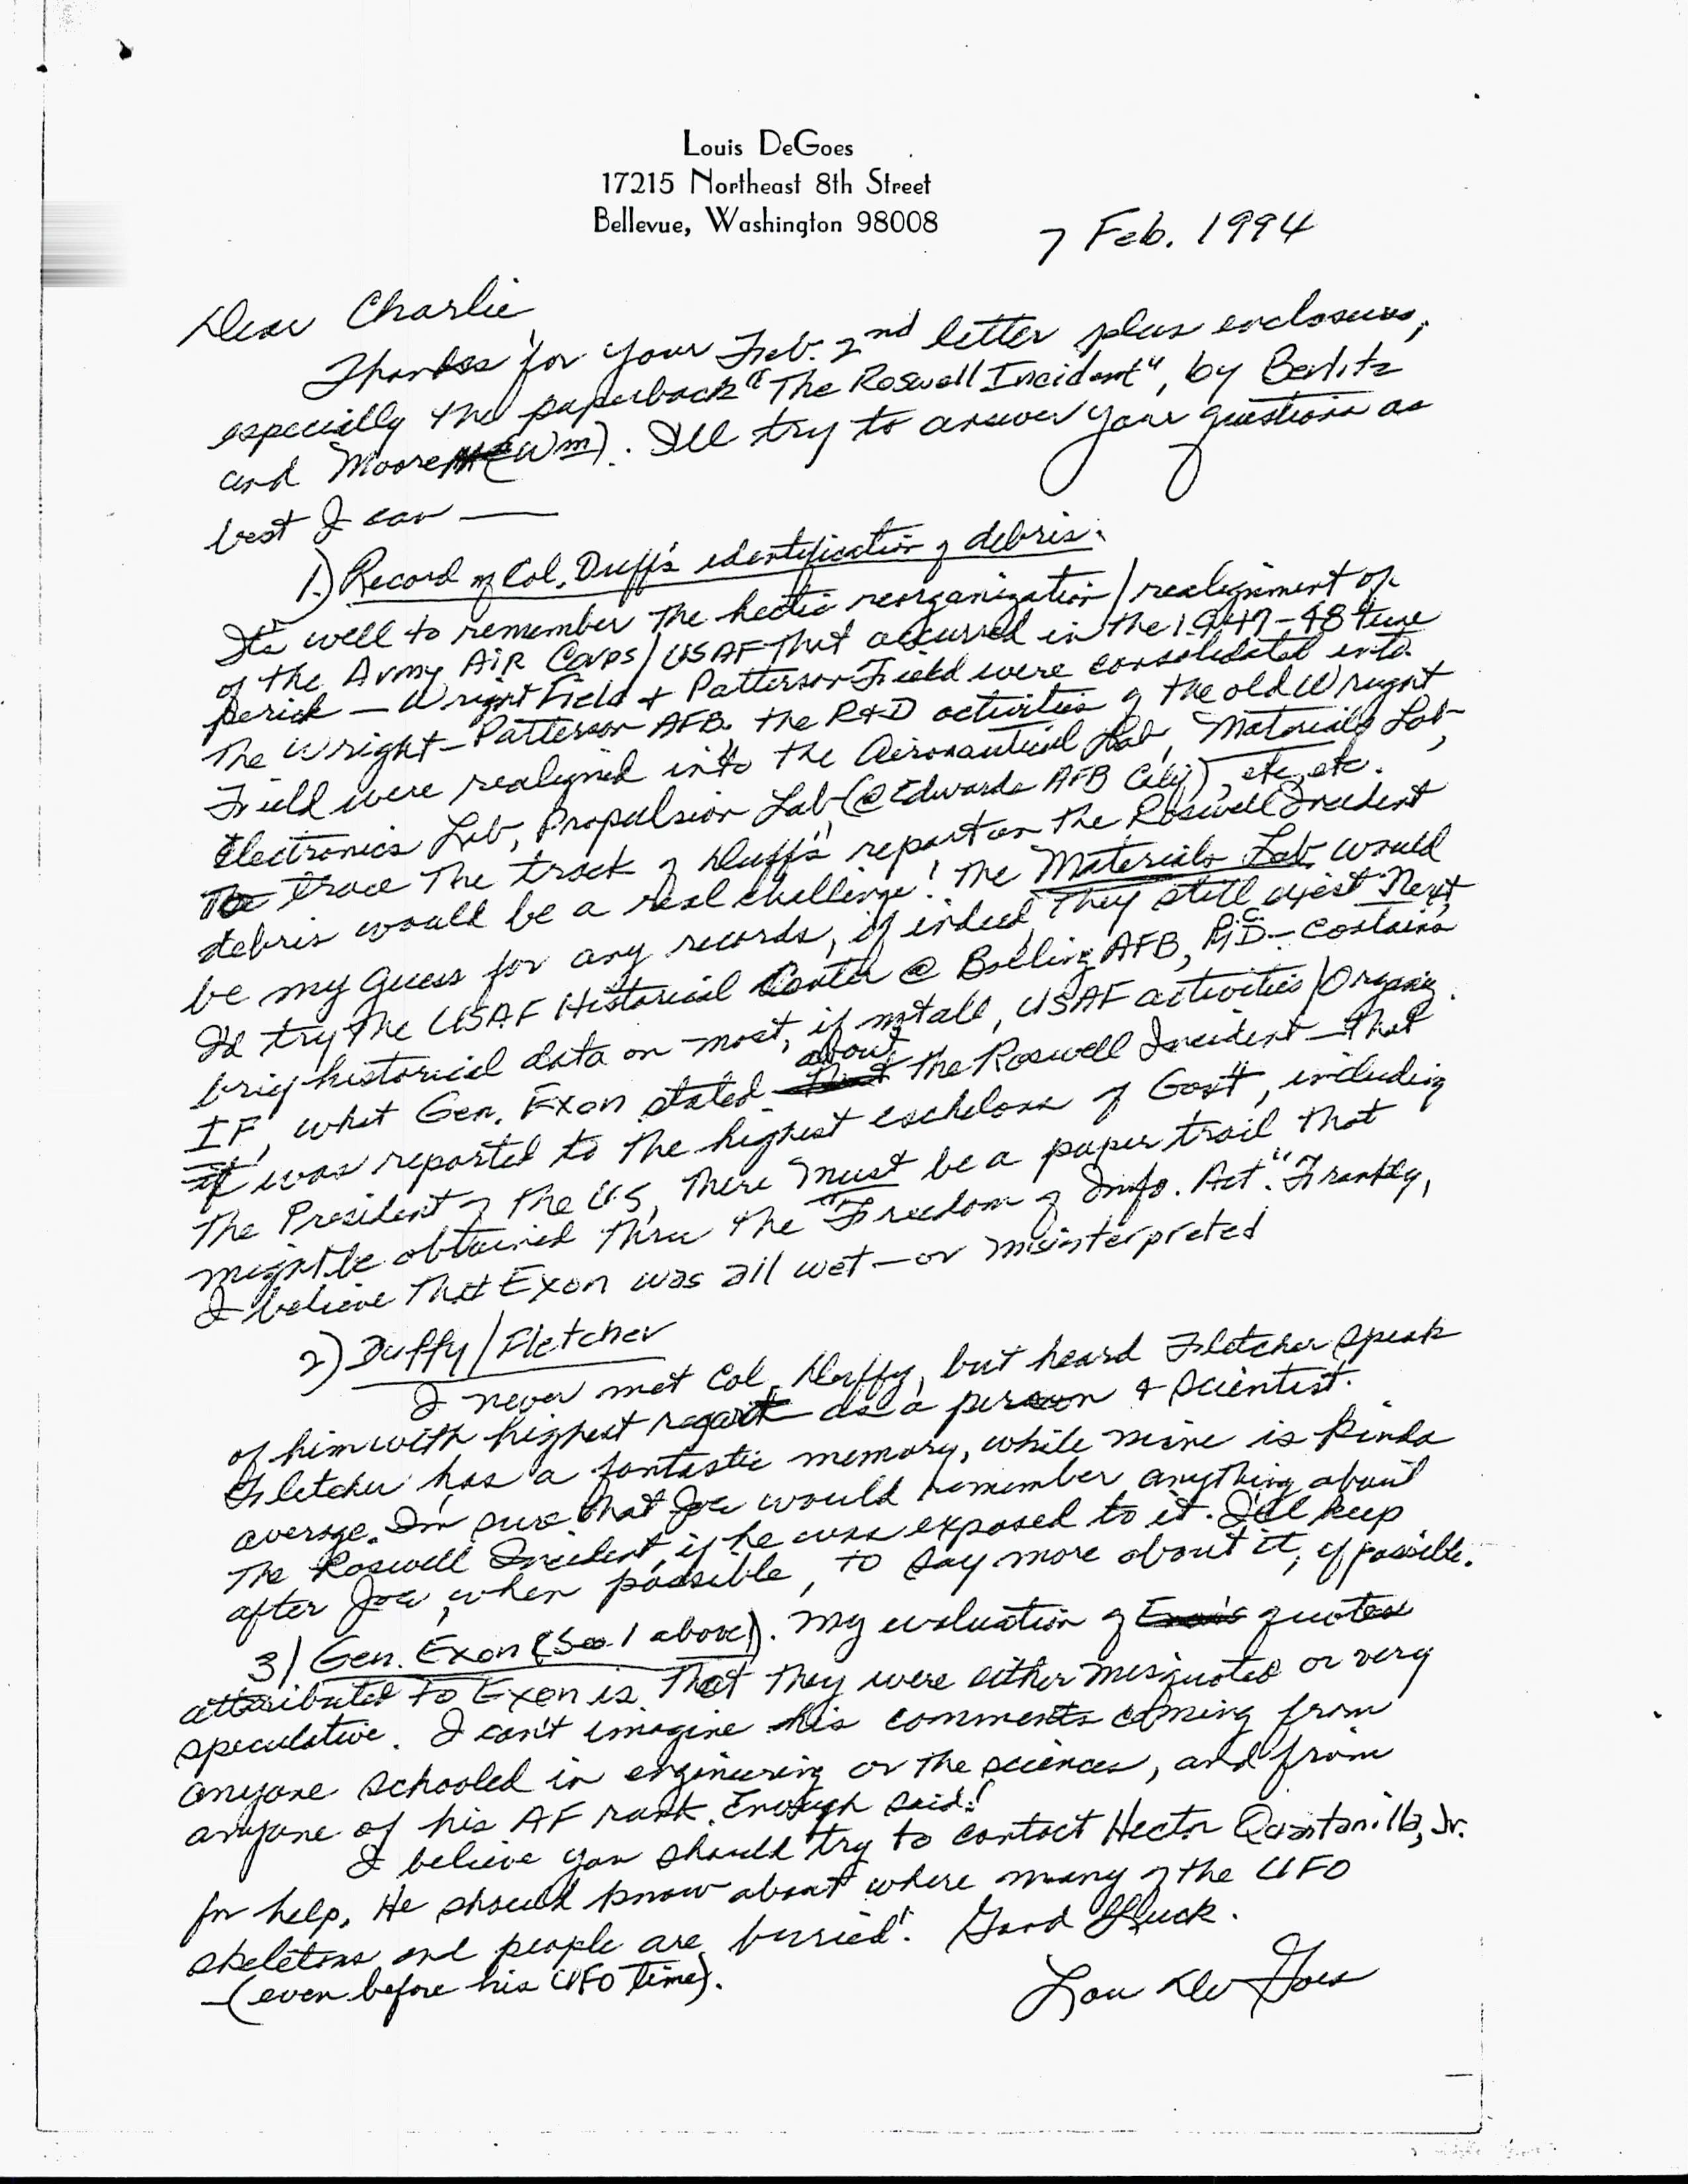 Louis DeGoes
17215 Northeast 8th Street
Bellevue, Washington 98008
7 Feb. 1994
Dear Charlie
Thanks for your Feb. 2nd letter plus enclosures,
especially the paperback "The Roswell Incident", by Berlitz
and Moore (Wm). I'll try to answer your questions as
best I can —
1.) Record of Col. Duff's identification of debris.
It's well to remember the hectic reorganization/realignment of
of the Army Air Corps/USAF that occurred in the 1947-48 time
period — Wright Field & Patterson Field were consolidated into
the Wright-Patterson AFB, the R&D activities of the old Wright
Field were realigned into the Aeronautical Lab, Materials Lab,
Electronics Lab, Propulsion Lab (@ Edwards AFB Calif), etc, etc.
To trace the track of Duff's report on the Roswell Incident
debris would be a real challenge! The Materials Lab would
be my guess for any records, if indeed, they still exist. Next,
I'd try the USAF Historical Center @ Bolling AFB, D.C. - contains
brief historical data on most, if not all, USAF activities/Organiz.
IF, what Gen. Exon stated about the Roswell Incident — that
it was reported to the highest eschelons of Gov't, including
the President of the US, there must be a paper trail that
might be obtained thru the "Freedom of Info. Act". Frankly,
I believe that Exon was all wet — or misinterpreted
2) Duffy/Fletcher
I never met Col. Duffy, but heard Fletcher speak
of him with highest regard as a person & scientist.
Fletcher has a fantastic memory, while mine is kinda
average. I'm sure that Joe would remember anything about
the Roswell Incident, if he was exposed to it. I'll keep
after Joe, when possible, to say more about it, if possible.
3) Gen. Exon (See 1 above). My evaluation of quotes
attributed to Exon is that they were either misquoted or very
speculative. I can't imagine his comments coming from
anyone schooled in engineering or the sciences, and from
anyone of his AF rank. Enough said!
I believe you should try to contact Hector Quintanilla, Jr.
for help. He should know about where many of the UFO
skeletons and people are buried! Good Luck.
—(even before his UFO time).
Lou DeGoes